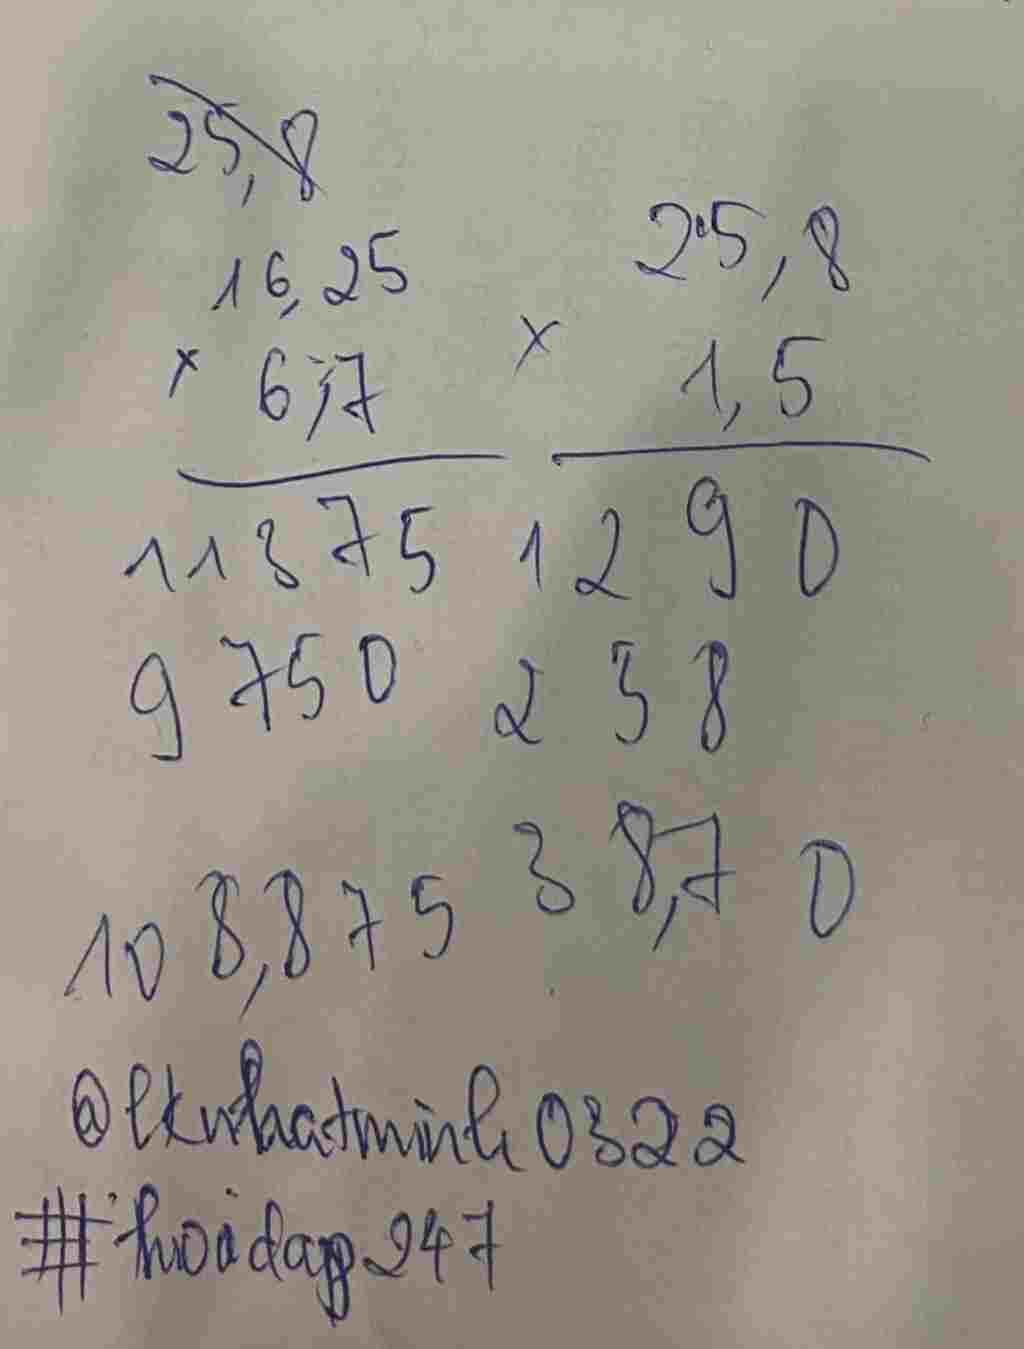 25,8
16,25
× 6,7
11375
9750
108,875
25,8
× 1,5
1290
258
38,70
@lknhatminh0322
#hoidap247